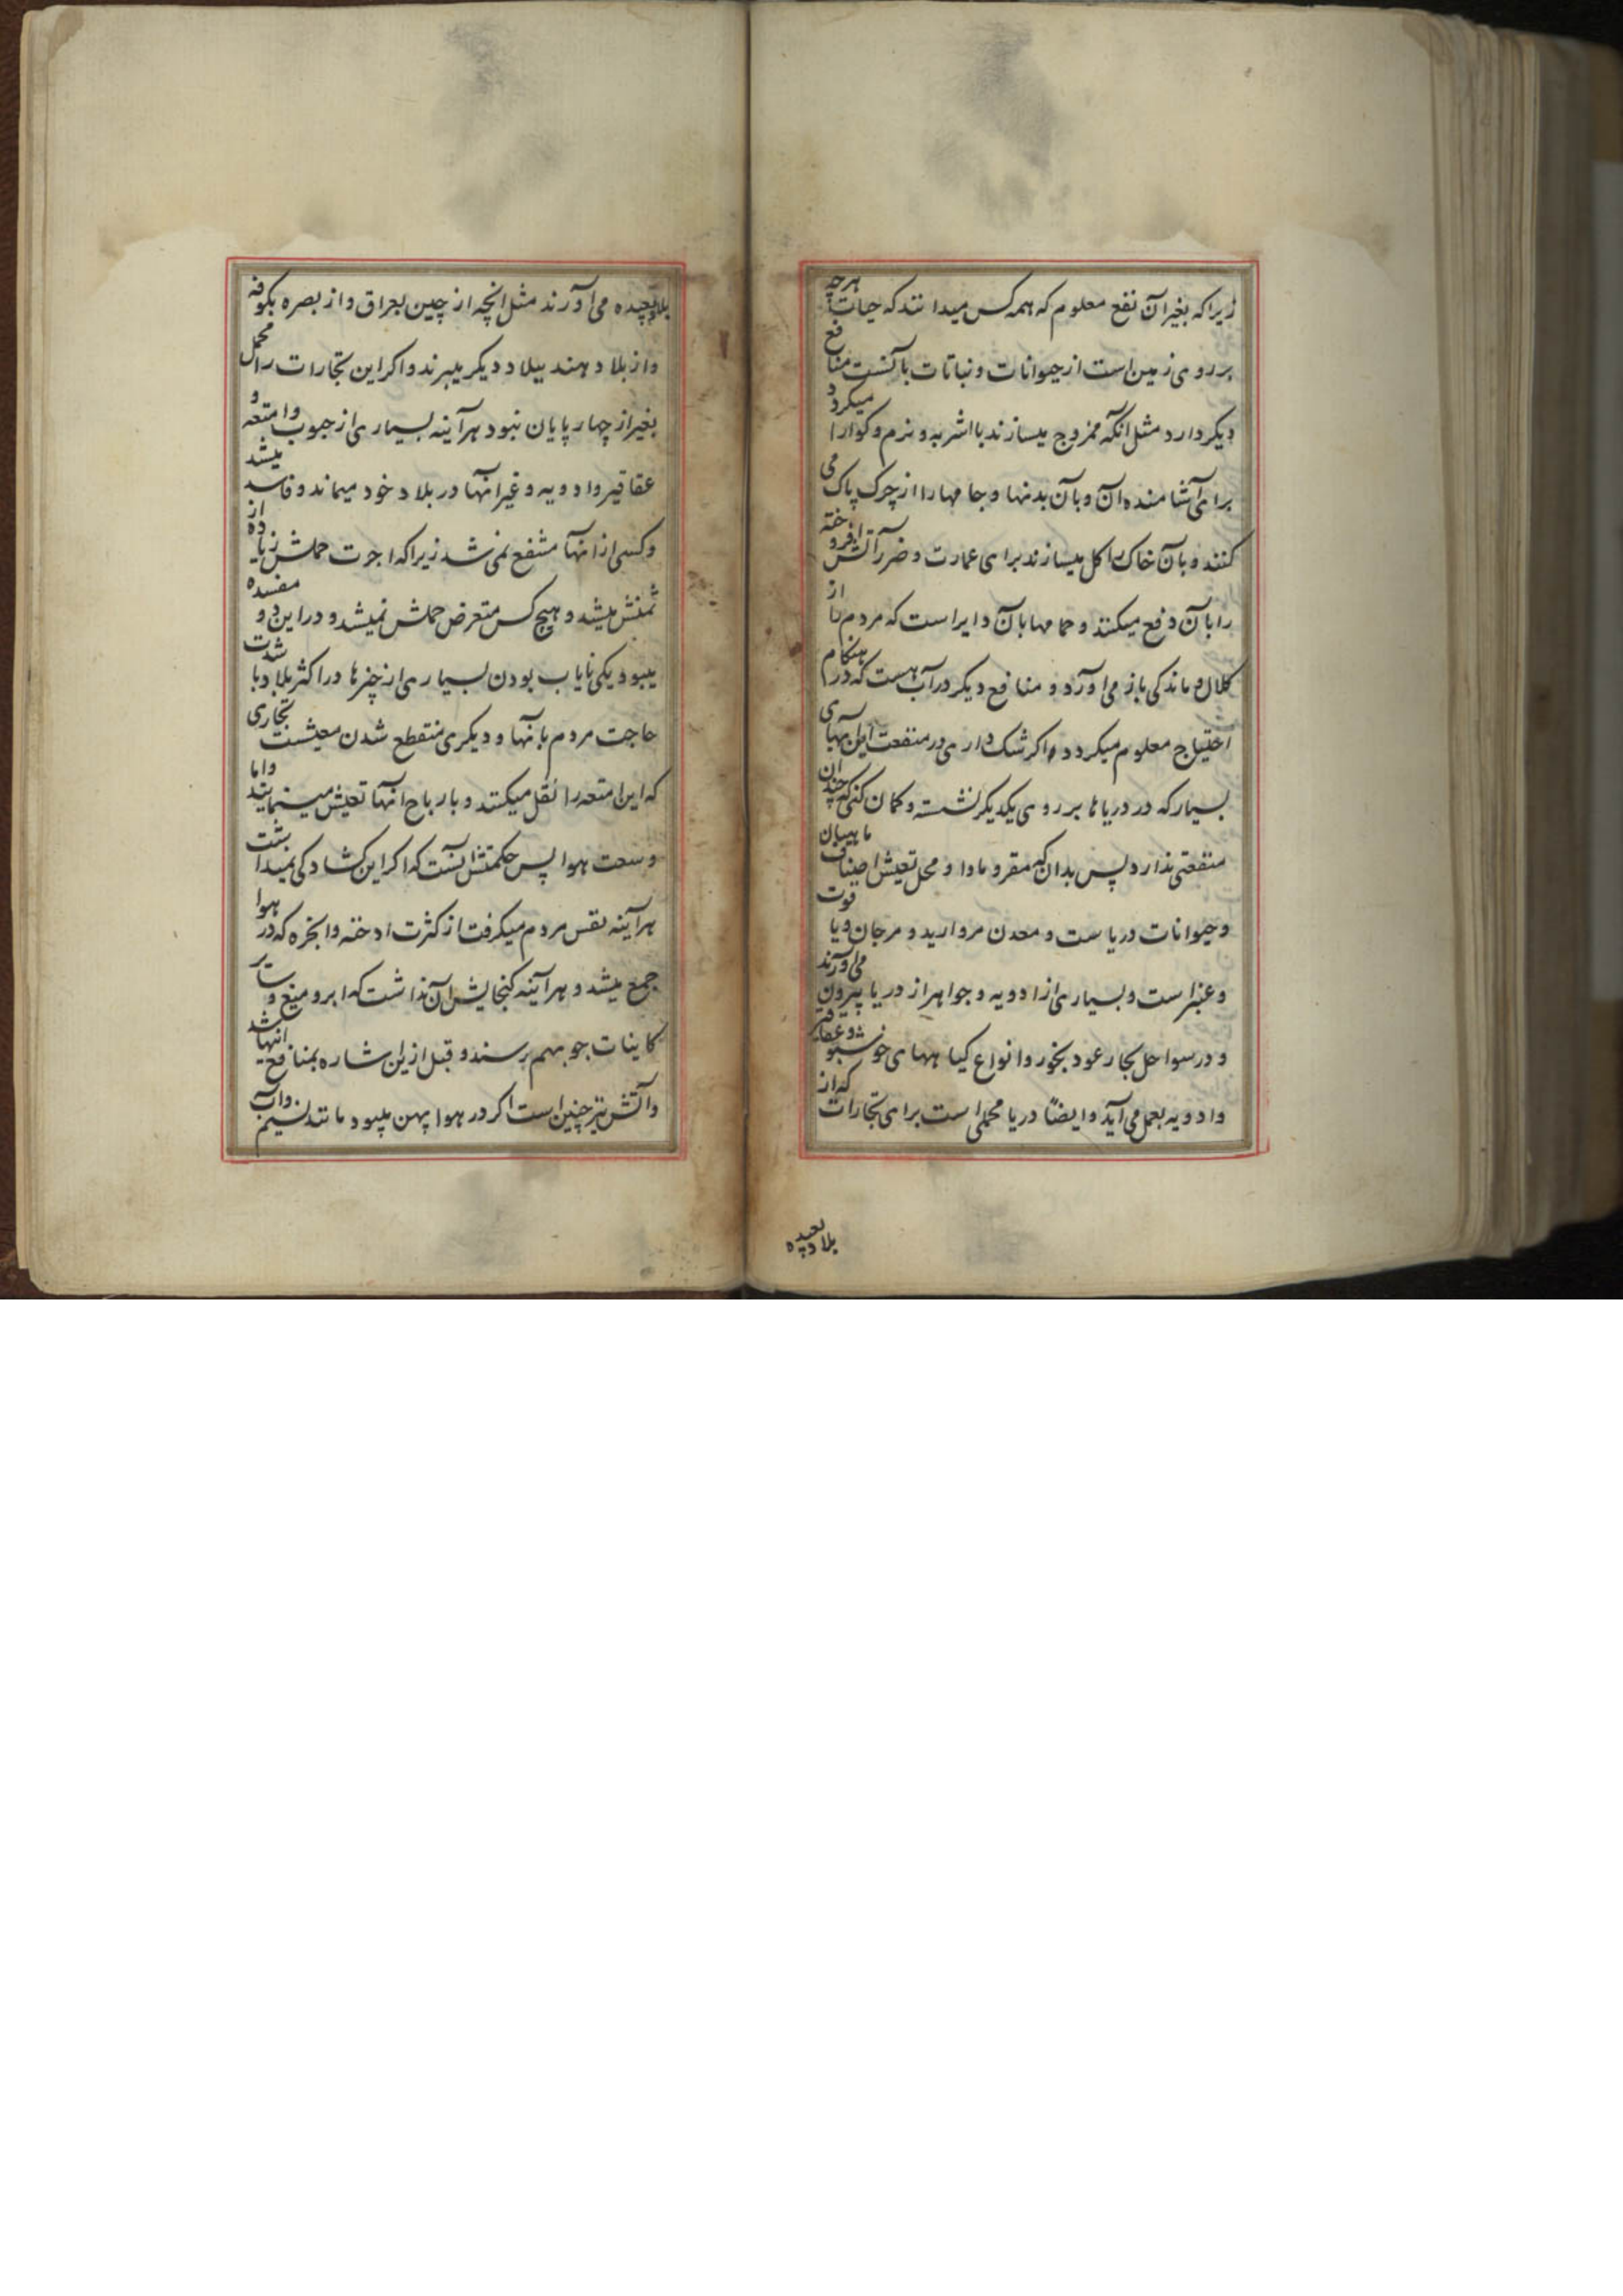 زیراکه بغیر آن نفع معلوم که همه کس میدانند که حیات هرچه
بر روی زمین است از حیوانات و نباتات بآنست منافع
دیگر دارد مثل آنکه ممزوج میسازند با اشربه و نرم و کوارا میکردد
برای آشامنده آن و بآن بدنها و جامهارا از چرک پاک می
کنند و بآن خاک را کل میسازند برای عمارت و ضرر آتش افروخته
را بآن دفع میکنند و حمامها بآن دایر است که مردم را از
کلال و ماندکی باز می آورد و منافع دیگر در آب هست که در هنکام
احتیاج معلوم میکردد و اکر شک داری در منفعت این آبهای
بسیار که در دریاها بر روی یکدیکر نشسته و کمان کنی که چندان
منفعتی ندارد پس بدان که مقر و ماوا و محل تعیش اصناف ماهیان
و حیوانات دریاست و معدن مروارید و مرجان و یاقوت
و عنبر است و بسیاری از ادویه و جواهر از دریا بیرون می آورند
و در سواحل بحار عود بخور و انواع کیاههای خوشبو و عقاقیر
و ادویه بعمل می آید و ایضاً دریا محملی است برای تجارات که از
بلاد بعیده
بلاد بعیده می آورند مثل انچه از چین بعراق و از بصره بکوفه
و از بلاد هند ببلاد دیکر میبرند و اکر این تجارات را محمل
بغیر از چهارپایان نبود هرآینه بسیاری از حبوب و امتعه و
عقاقیر و ادویه و غیر انها در بلاد خود میماند و فاسد میشد
و کسی از انها منتفع نمی شد زیراکه اجرت حملش زیاده از
ثمنش میشد و هیچ کس متعرض حملش نمیشد و در این دو مفسده
میبود یکی نایاب بودن بسیاری از چیزها در اکثر بلاد با شدت
حاجت مردم بانها و دیکری منقطع شدن معیشت تجاری
که این امتعه را نقل میکنند و بارباح انها تعیش مینمایند و اما
وسعت هوا پس حکمتش آنست که اکر این کشادکی نمیداشت
هرآینه نفس مردم میکرفت از کثرت ادخنه و ابخره که در هوا
جمع میشد و هرآینه کنجایش آن نداشت که ابر و میغ و سایر
کاینات جو بهم رسند و قبل از این اشاره بمنافع انها شد
و آتش نیز چنین است اکر در هوا پهن میبود مانند نسیم و آب